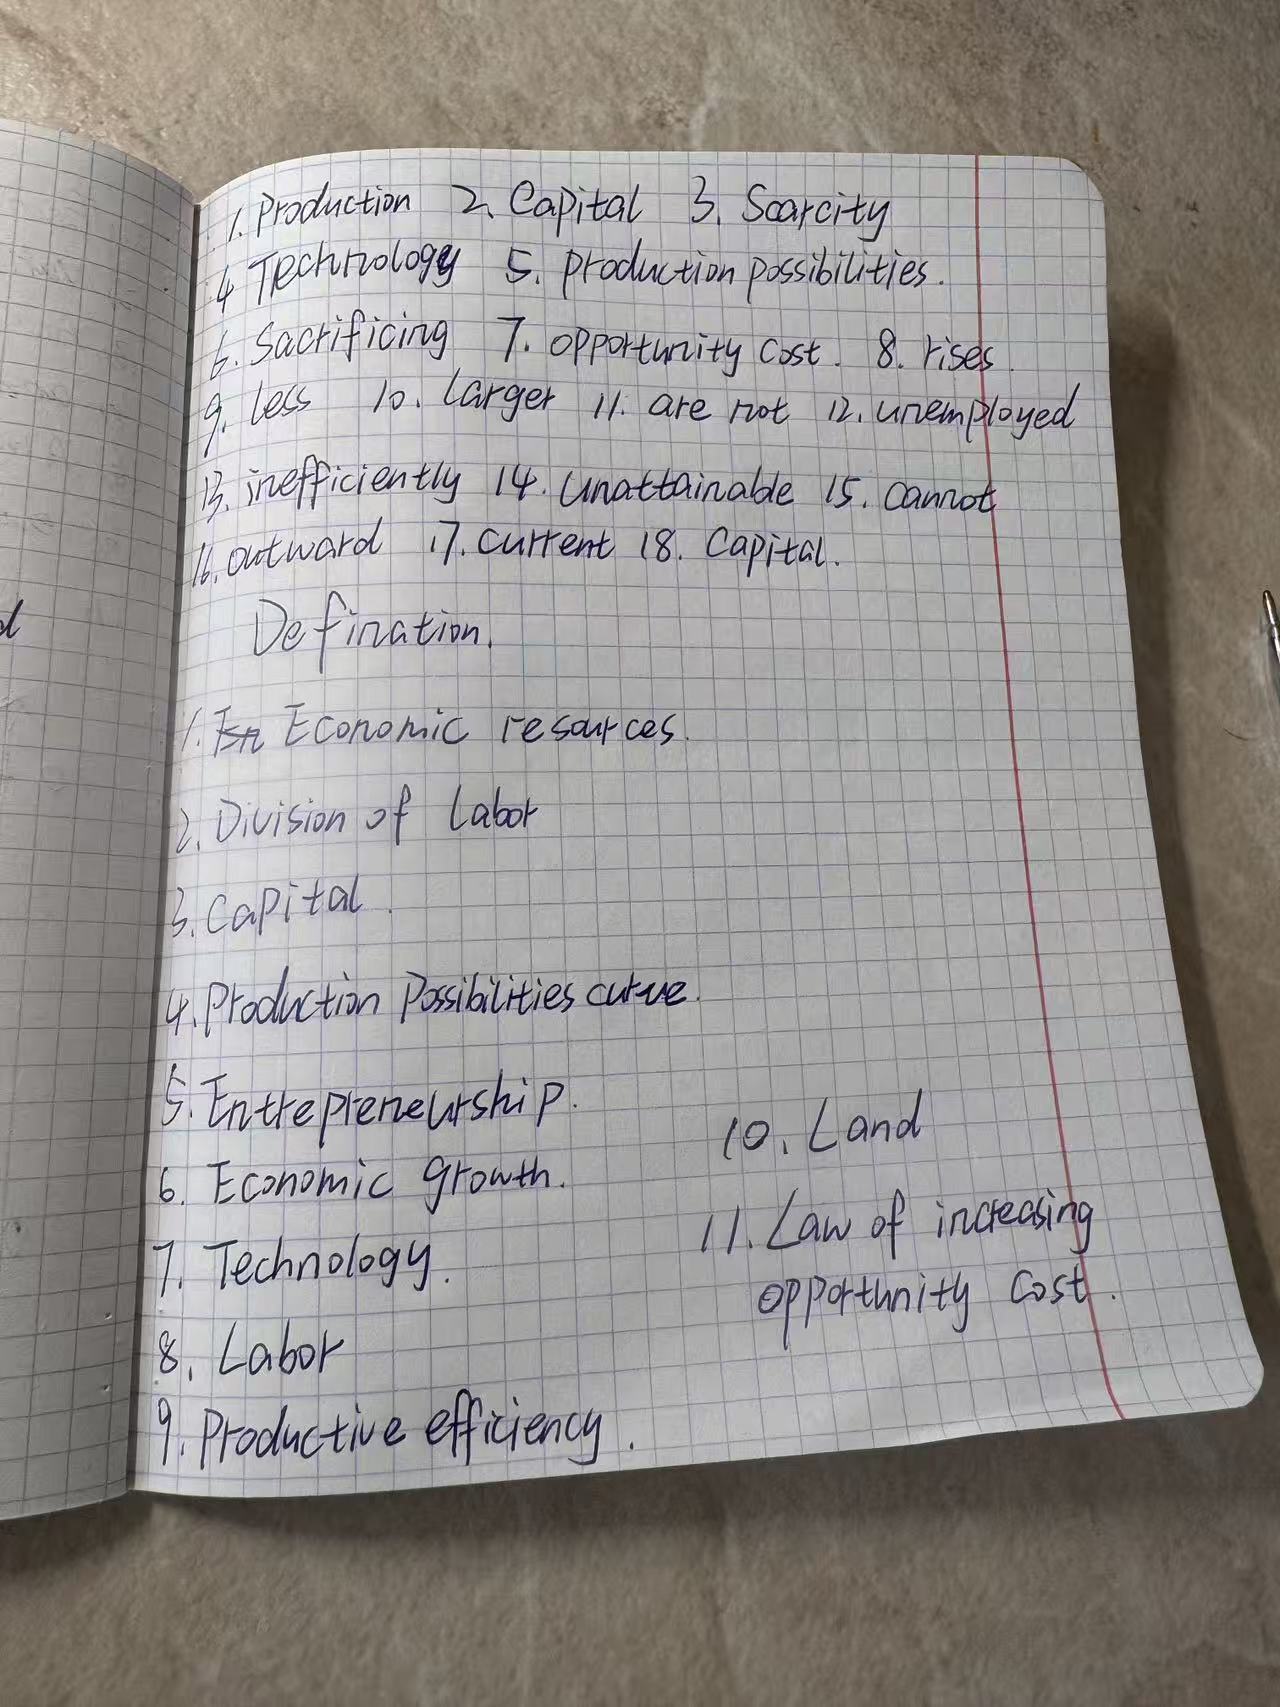 1. Production 2. Capital 3. Scarcity
4 Technology 5. Production possibilities.
6. Sacrificing 7. opportunity cost. 8. rises.
9. less 10. Larger 11. are not 12. unemployed
13. inefficiently 14. Unattainable 15. cannot
16. outward 17. current 18. Capital.
d
Defination.
1. En Economic resources.
2. Division of Labor
3. Capital.
4. Production Possibilities curve.
5. Entrepreneurship.
6. Economic growth.
7. Technology.
8. Labor
9. Productive efficiency.
10. Land
11. Law of increasing
opportunity cost.